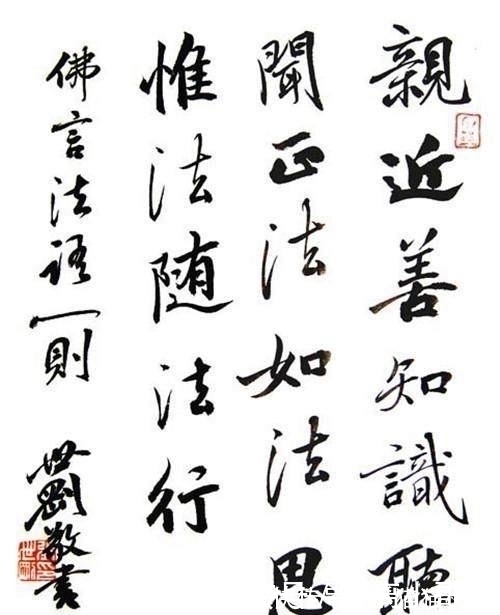 親近善知識聽
聞正法如法思
惟法随法行
佛言法語一則
世剛敬書